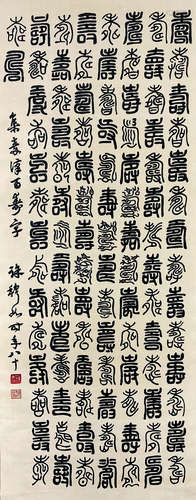 壽壽壽壽壽壽壽壽壽壽壽壽壽壽
壽壽壽壽壽壽壽壽壽壽壽壽壽壽
壽壽壽壽壽壽壽壽壽壽壽壽壽壽
壽壽壽壽壽壽壽壽壽壽壽壽壽壽
壽壽壽壽壽壽壽壽壽壽壽壽壽壽
壽壽壽壽壽壽壽壽壽壽壽壽壽壽
壽壽壽壽壽壽壽壽壽壽壽壽壽壽
壽壽
集秦漢百壽字
穆如時年八十